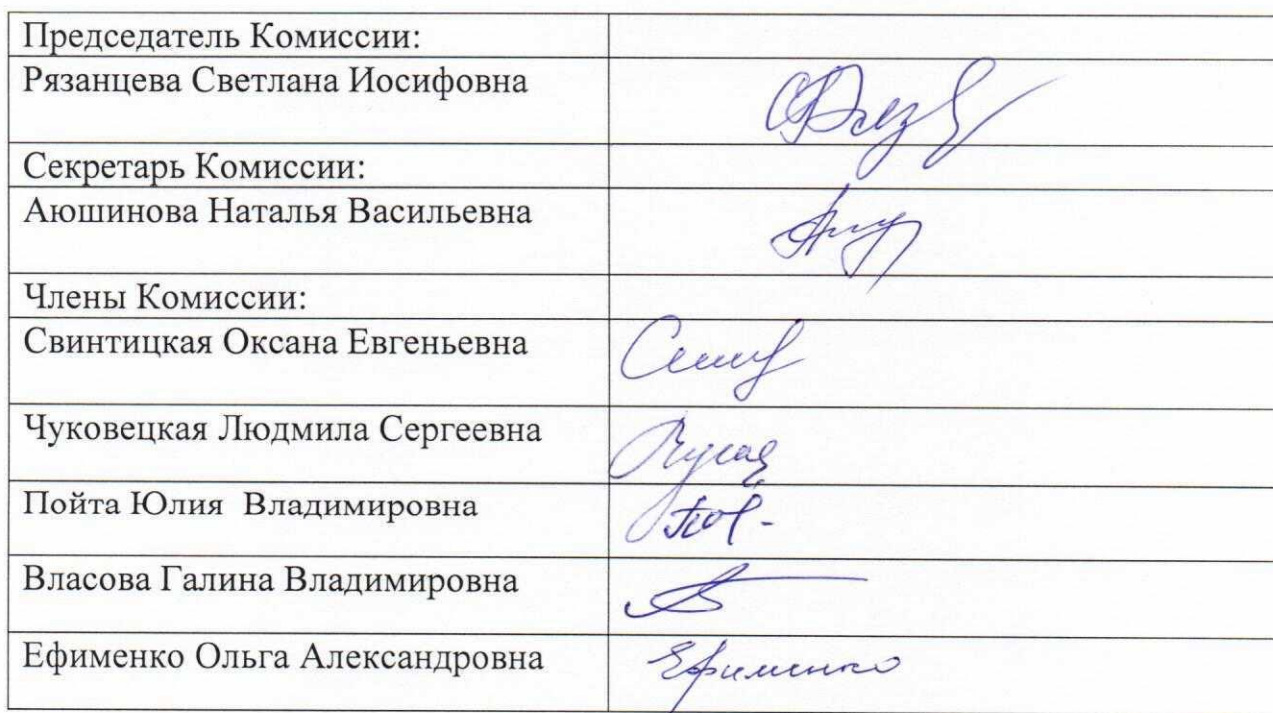 Председатель Комиссии:
Рязанцева Светлана Иосифовна
Секретарь Комиссии:
Аюшинова Наталья Васильевна
Члены Комиссии:
Свинтицкая Оксана Евгеньевна
Чуковецкая Людмила Сергеевна
Пойта Юлия Владимировна
Власова Галина Владимировна
Ефименко Ольга Александровна Ефименко